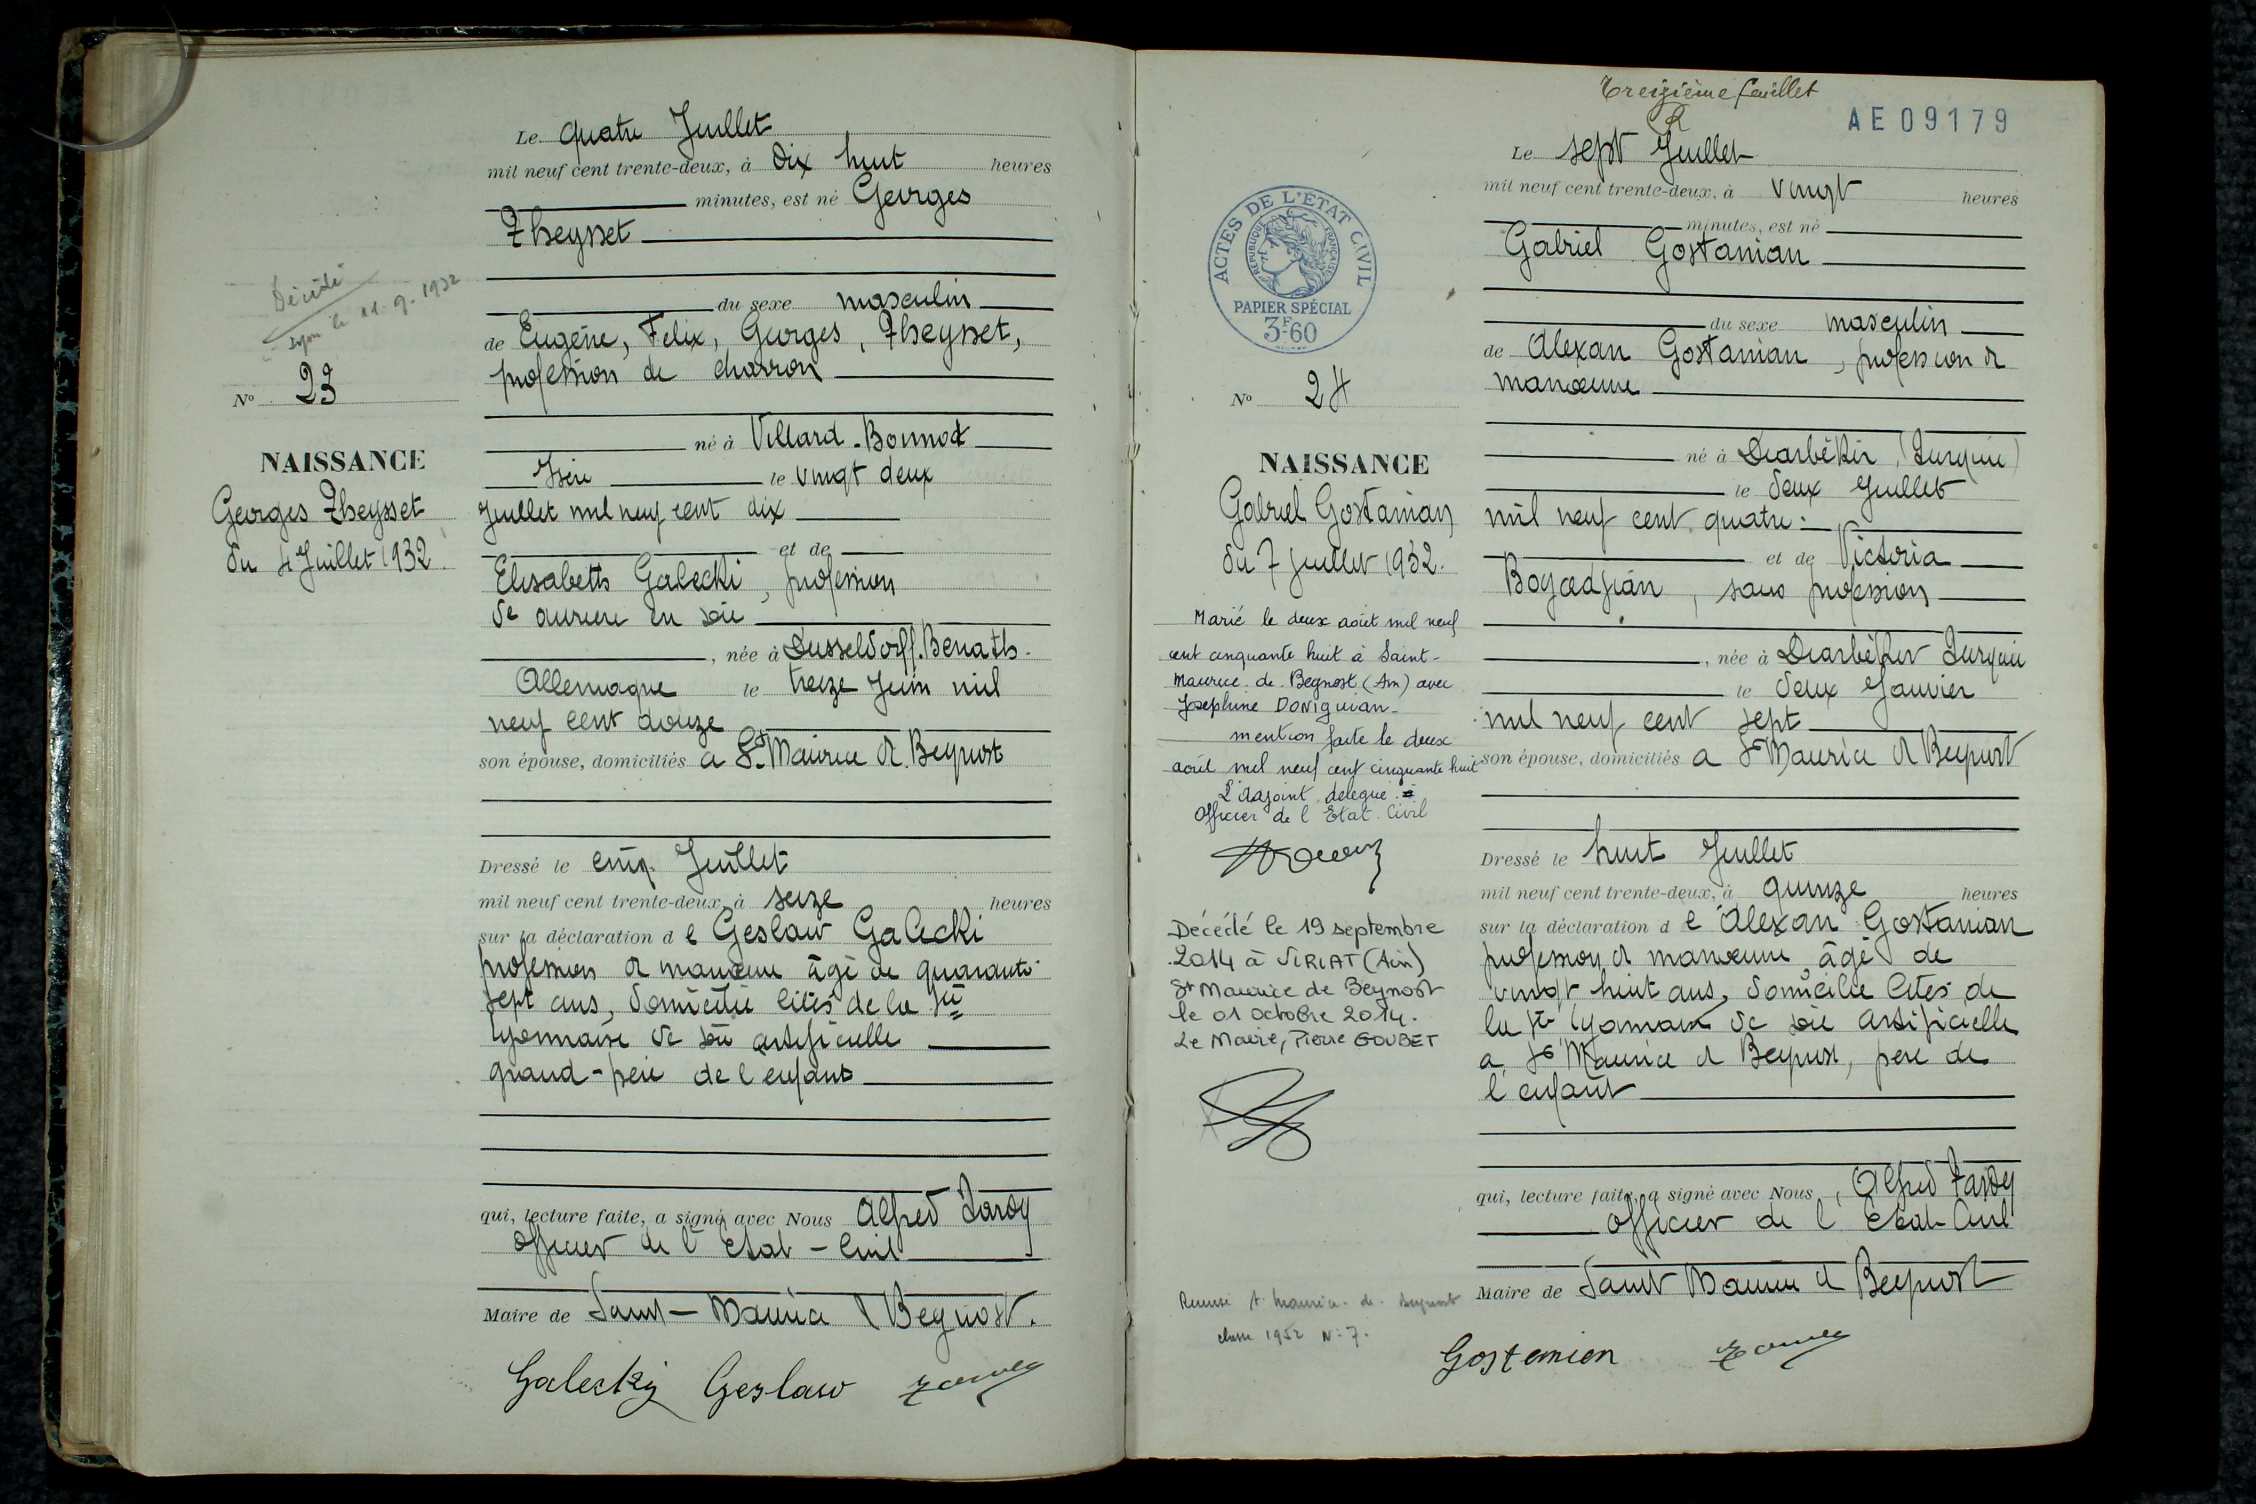 Le quatre Juillet
mil neuf cent trente-deux, à dix huit heures
minutes, est né Georges
Theysset
Décédé
Lyon le 11.9.1932
du sexe masculin
de Eugène, Felix, Georges, Theysset,
profession de charron
N° 23
né à Villard-Bonnot
Isère le vingt deux
NAISSANCE
Georges Theysset
du 4 Juillet 1932.
Juillet mil neuf cent dix
et de
Elisabeth Galecki, profession
de ouvriere en soie
, née à Dusseldorff. Benath.
Allemagne le treize Juin mil
neuf cent douze
son épouse, domiciliés a St Maurice de Beynost
Dressé le cinq Juillet
mil neuf cent trente-deux, à seize heures
sur la déclaration d e Geslaw Galecki
profession de manœuvre âgé de quarante
sept ans, domicilié cités de la Sté
lyonnaise de soie artificielle
grand-père de l'enfant
qui, lecture faite, a signé avec Nous Alfred Tardy
Officier de l'Etat-Civil
Maire de Saint-Maurice de Beynost.
Galecky Geslaw
Treizième feuillet
AE 09179
Le sept Juillet
mil neuf cent trente-deux, à vingt heures
minutes, est né
Gabriel Gostanian
ACTES DE L'ETAT CIVIL
REPUBLIQUE FRANÇAISE
PAPIER SPÉCIAL
3F.60
du sexe masculin
de Alexan Gostanian, profession de
manœuvre
N° 24
né à Diarbékir, (Turquie)
le deux Juillet
mil neuf cent quatre.
et de Victoria
Bogoedjian, sans profession
, née à Diarbékir Turquie
le deux Janvier
mil neuf cent sept
son épouse, domiciliés a St Maurice de Beynost
NAISSANCE
Gabriel Gostanian
du 7 Juillet 1932.
Marié le deux août mil neuf
cent cinquante huit à Saint-
Maurice de Beynost (Ain) avec
Josephine DONIGUIAN
mention faite le deux
août mil neuf cent cinquante huit
L'Adjoint délégué
Officier de l'Etat Civil
Décédé le 19 septembre
2014 à VIRIAT (Ain)
St Maurice de Beynost
le 01 octobre 2014.
Le Maire, Pierre GOUBET
Dressé le huit Juillet
mil neuf cent trente-deux, à quinze heures
sur la déclaration d e Alexan Gostanian
profession de manœuvre âgé de
vingt huit ans, domicilié Cités de
la Sté lyonnaise de soie artificielle
a St Maurice de Beynost, père de
l'enfant
qui, lecture faite, a signé avec Nous, Alfred Tardy
Officier de l'Etat-Civil
Maire de Saint Maurice de Beynost
St Maurice de Beynost
classe 1952 N° 7.
Gostanian